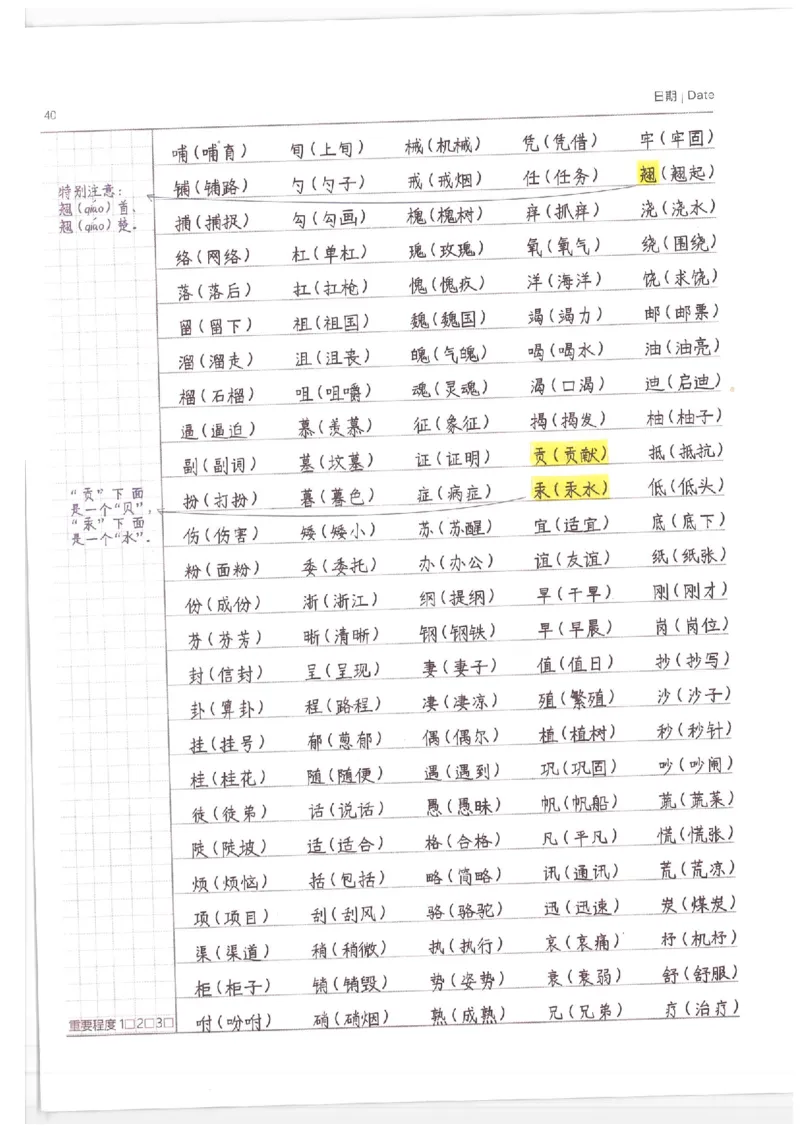 40
日期 | Date
哺（哺育） 旬（上旬） 械（机械） 凭（凭借） 牢（牢固）
铺（铺路） 勺（勺子） 戒（戒烟） 任（任务） 翘（翘起）
捕（捕捉） 勾（勾画） 槐（槐树） 痒（抓痒） 浇（浇水）
络（网络） 杠（单杠） 瑰（玫瑰） 氧（氧气） 绕（围绕）
落（落后） 扛（扛枪） 愧（愧疚） 洋（海洋） 饶（求饶）
留（留下） 祖（祖国） 魏（魏国） 竭（竭力） 邮（邮票）
溜（溜走） 沮（沮丧） 魄（气魄） 喝（喝水） 油（油亮）
榴（石榴） 咀（咀嚼） 魂（灵魂） 渴（口渴） 迪（启迪）
逼（逼迫） 慕（羡慕） 征（象征） 揭（揭发） 柚（柚子）
副（副词） 墓（坟墓） 证（证明） 贡（贡献） 抵（抵抗）
扮（打扮） 暮（暮色） 症（病症） 汞（汞水） 低（低头）
伤（伤害） 矮（矮小） 苏（苏醒） 宜（适宜） 底（底下）
粉（面粉） 委（委托） 办（办公） 谊（友谊） 纸（纸张）
份（成份） 浙（浙江） 纲（提纲） 旱（干旱） 刚（刚才）
芬（芬芳） 晰（清晰） 钢（钢铁） 早（早晨） 岗（岗位）
封（信封） 呈（呈现） 妻（妻子） 值（值日） 抄（抄写）
卦（算卦） 程（路程） 凄（凄凉） 殖（繁殖） 沙（沙子）
挂（挂号） 郁（葱郁） 偶（偶尔） 植（植树） 秒（秒针）
桂（桂花） 随（随便） 遇（遇到） 巩（巩固） 吵（吵闹）
徒（徒弟） 话（说话） 愚（愚昧） 帆（帆船） 蔬（蔬菜）
陡（陡坡） 适（适合） 格（合格） 凡（平凡） 慌（慌张）
烦（烦恼） 括（包括） 略（简略） 讯（通讯） 荒（荒凉）
项（项目） 刮（刮风） 骆（骆驼） 迅（迅速） 炭（煤炭）
渠（渠道） 稍（稍微） 执（执行） 哀（哀痛） 杼（机杼）
柜（柜子） 销（销毁） 势（姿势） 衰（衰弱） 舒（舒服）
咐（吩咐） 硝（硝烟） 熟（成熟） 兄（兄弟） 疗（治疗）
特别注意：
翘（qiáo）首、
翘（qiáo）楚。
“贡”下面
是一个“贝”，
“汞”下面
是一个“水”。
重要程度 1□2□3□